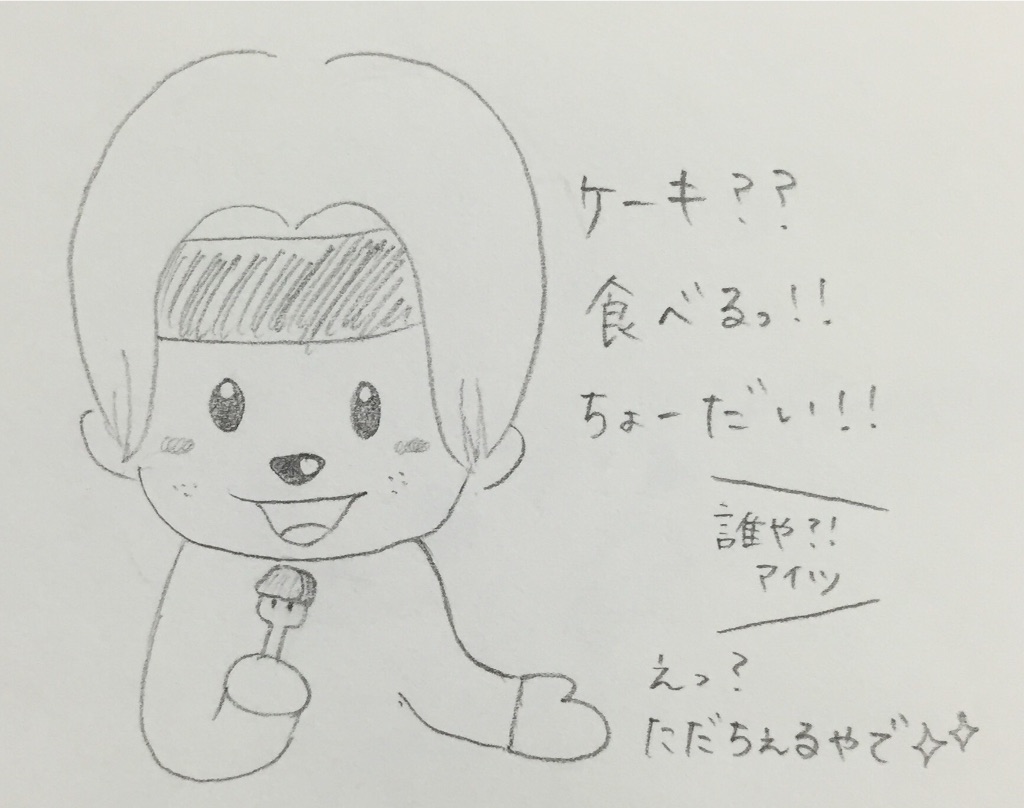 ケーキ??
食べるっ!!
ちょーだい!!
誰や?!
アイツ
えっ?
ただちぇるやで